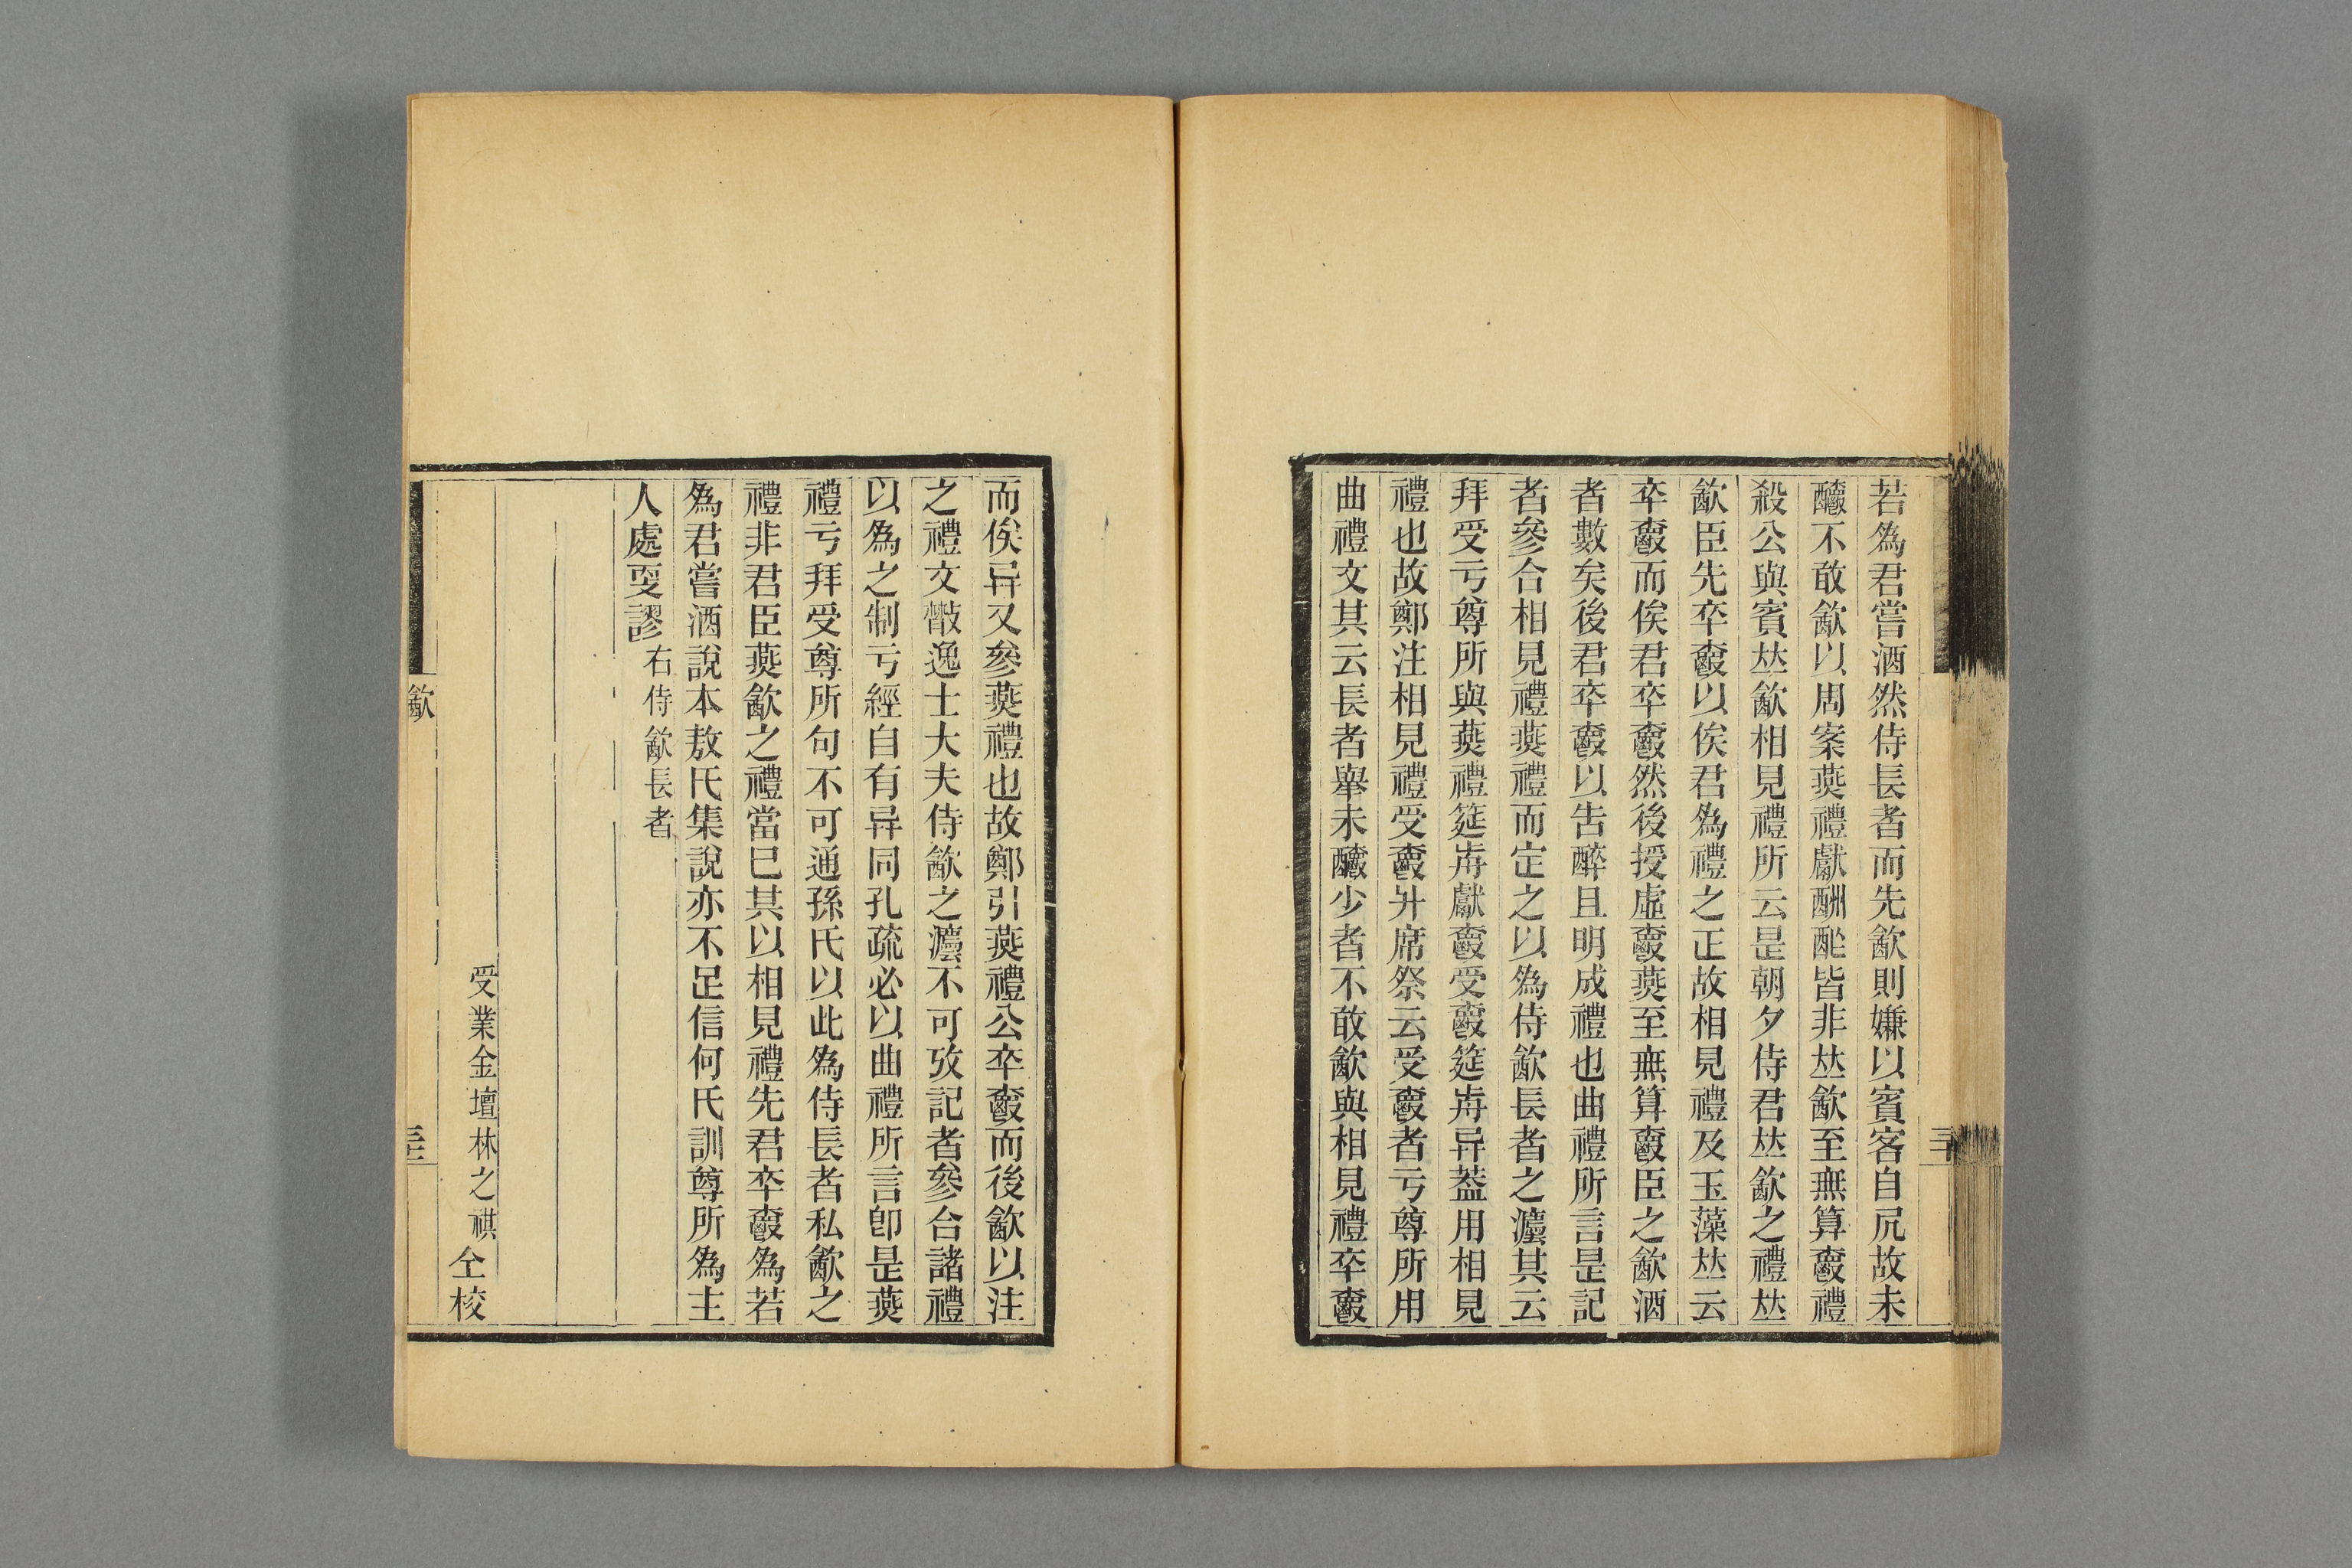 若為君嘗酒然侍長者而先㱃則嫌以賓客自凥故未
釂不敢㱃以周案燕禮獻酬酢皆非𠀤㱃至無算𩰥禮
殺公與賓𠀤㱃相見禮所云是朝夕侍君𠀤㱃之禮𠀤
㱃臣先卒𩰥以俟君為禮之正故相見禮及玉藻𠀤云
卒𩰥而俟君卒𩰥然後授虛𩰥燕至無算𩰥臣之㱃酒
者數矣後君卒𩰥以告醉且明成禮也曲禮所言是記
者參合相見禮燕禮而定之以為侍㱃長者之灋其云
拜受亏尊所與燕禮筵歬獻𩰥受𩰥筵歬异葢用相見
禮也故鄭注相見禮受𩰥升席祭云受𩰥者亏尊所用
曲禮文其云長者舉未釂少者不敢㱃與相見禮卒𩰥
而俟异又參燕禮也故鄭引燕禮公卒𩰥而後㱃以注
之禮文散逸士大夫侍㱃之灋不可攷記者參合諸禮
以為之制亏經自有异同孔疏必以曲禮所言卽是燕
禮亏拜受尊所句不可通孫氏以此為侍長者私㱃之
禮非君臣燕㱃之禮當巳其以相見禮先君卒𩰥為若
為君嘗酒說本敖氏集說亦不足信何氏訓尊所為主
人處㪅謬右侍㱃長者
受業金壇林之祺仝校
㱃